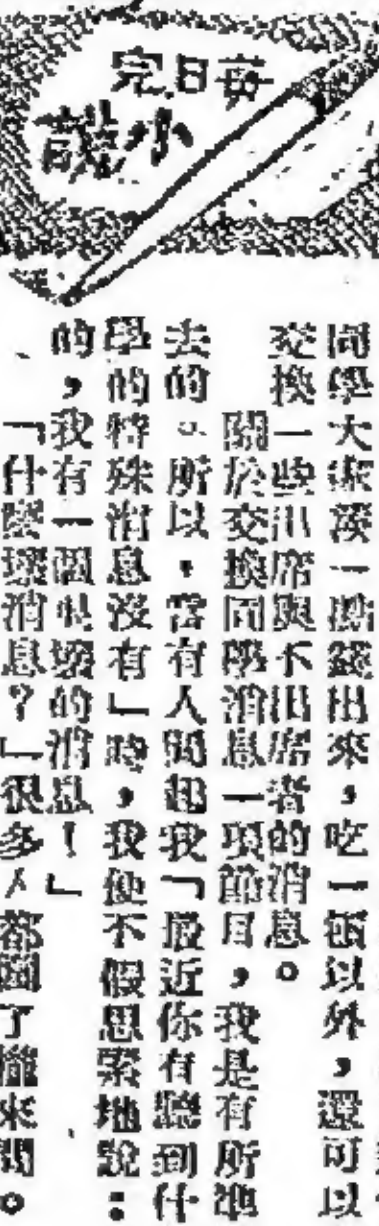 每日完
小說
同學大家湊一點錢出來，吃一頓以外，還可以
交換一些出席與不出席者的消息。
關於交換同學消息一項節目，我是有所準
去的。所以，當有人問起我「最近你有聽到什
學的特殊消息沒有」時，我便不假思索地說：
的，我有一個最壞的消息！」
、「什麼壞消息？」很多人都圍了攏來問。